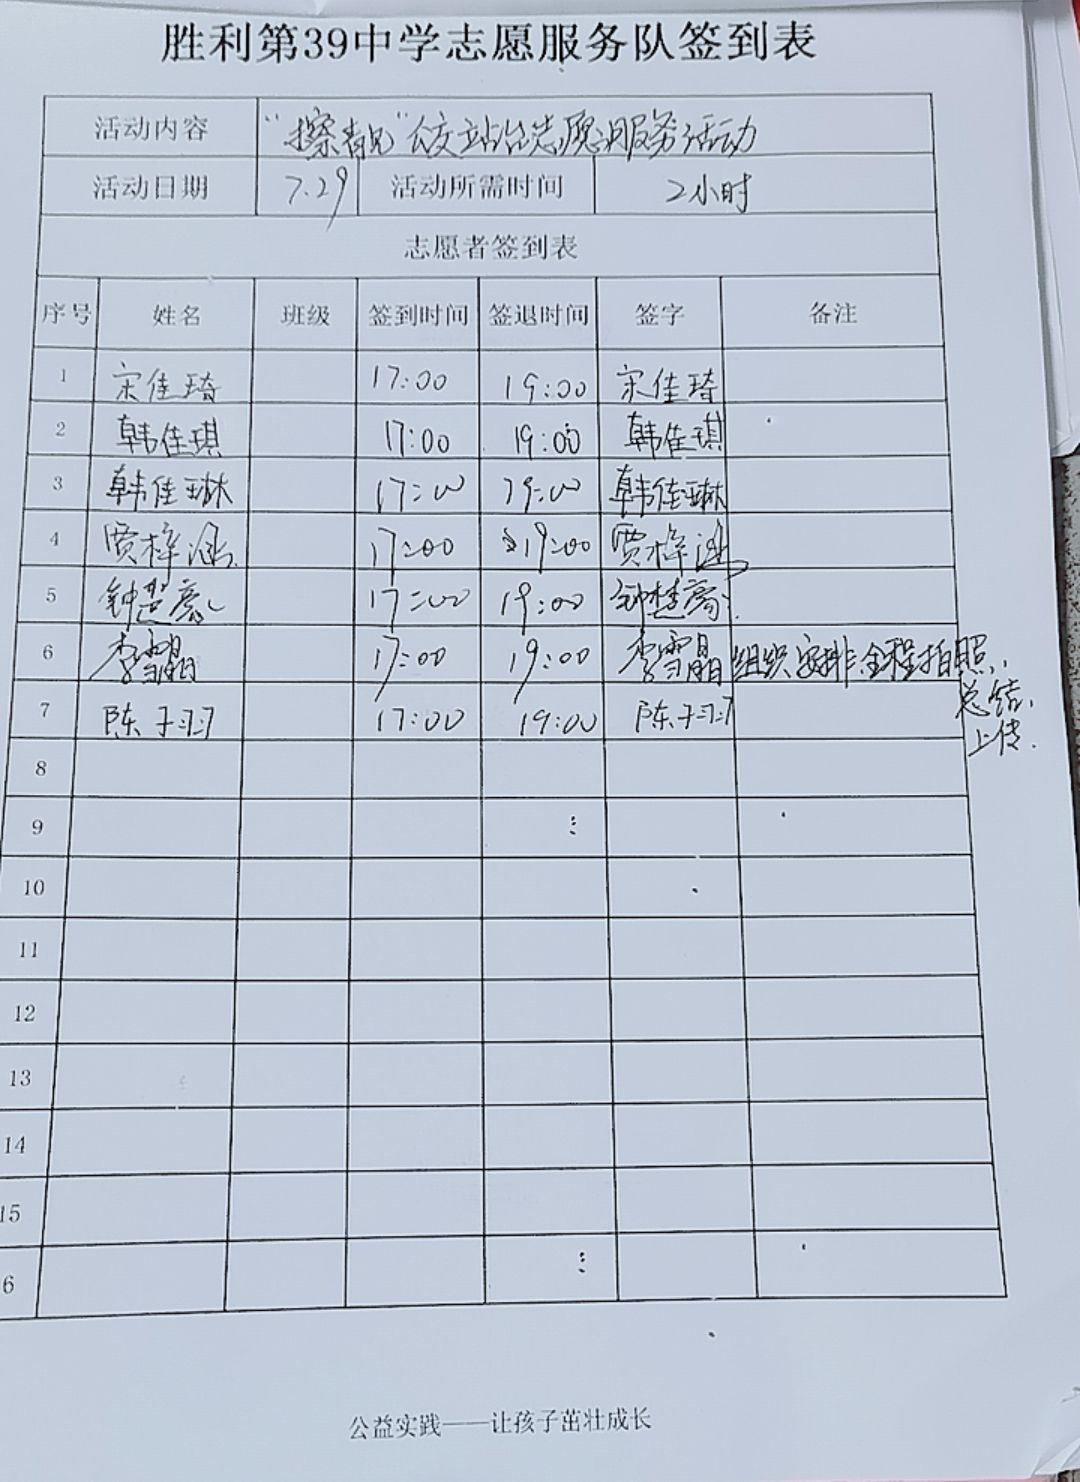 胜利第39中学志愿服务队签到表
活动内容 "擦靓"公交站台志愿服务活动
活动日期 7.29 活动所需时间 2小时
志愿者签到表
序号 姓名 班级 签到时间 签退时间 签字 备注
1 宋佳琦 17:00 19:00 宋佳琦
2 韩佳琪 17:00 19:00 韩佳琪
3 韩佳琳 17:00 19:00 韩佳琳
4 贾梓涵 17:00 19:00 贾梓涵
5 钟楚 17:00 19:00 钟楚
6 李雪晶 17:00 19:00 李雪晶 组织安排、全程拍照、
总结、
上传.
7 陈子羽 17:00 19:00 陈子羽
8
9
10
11
12
13
14
15
6
公益实践——让孩子茁壮成长